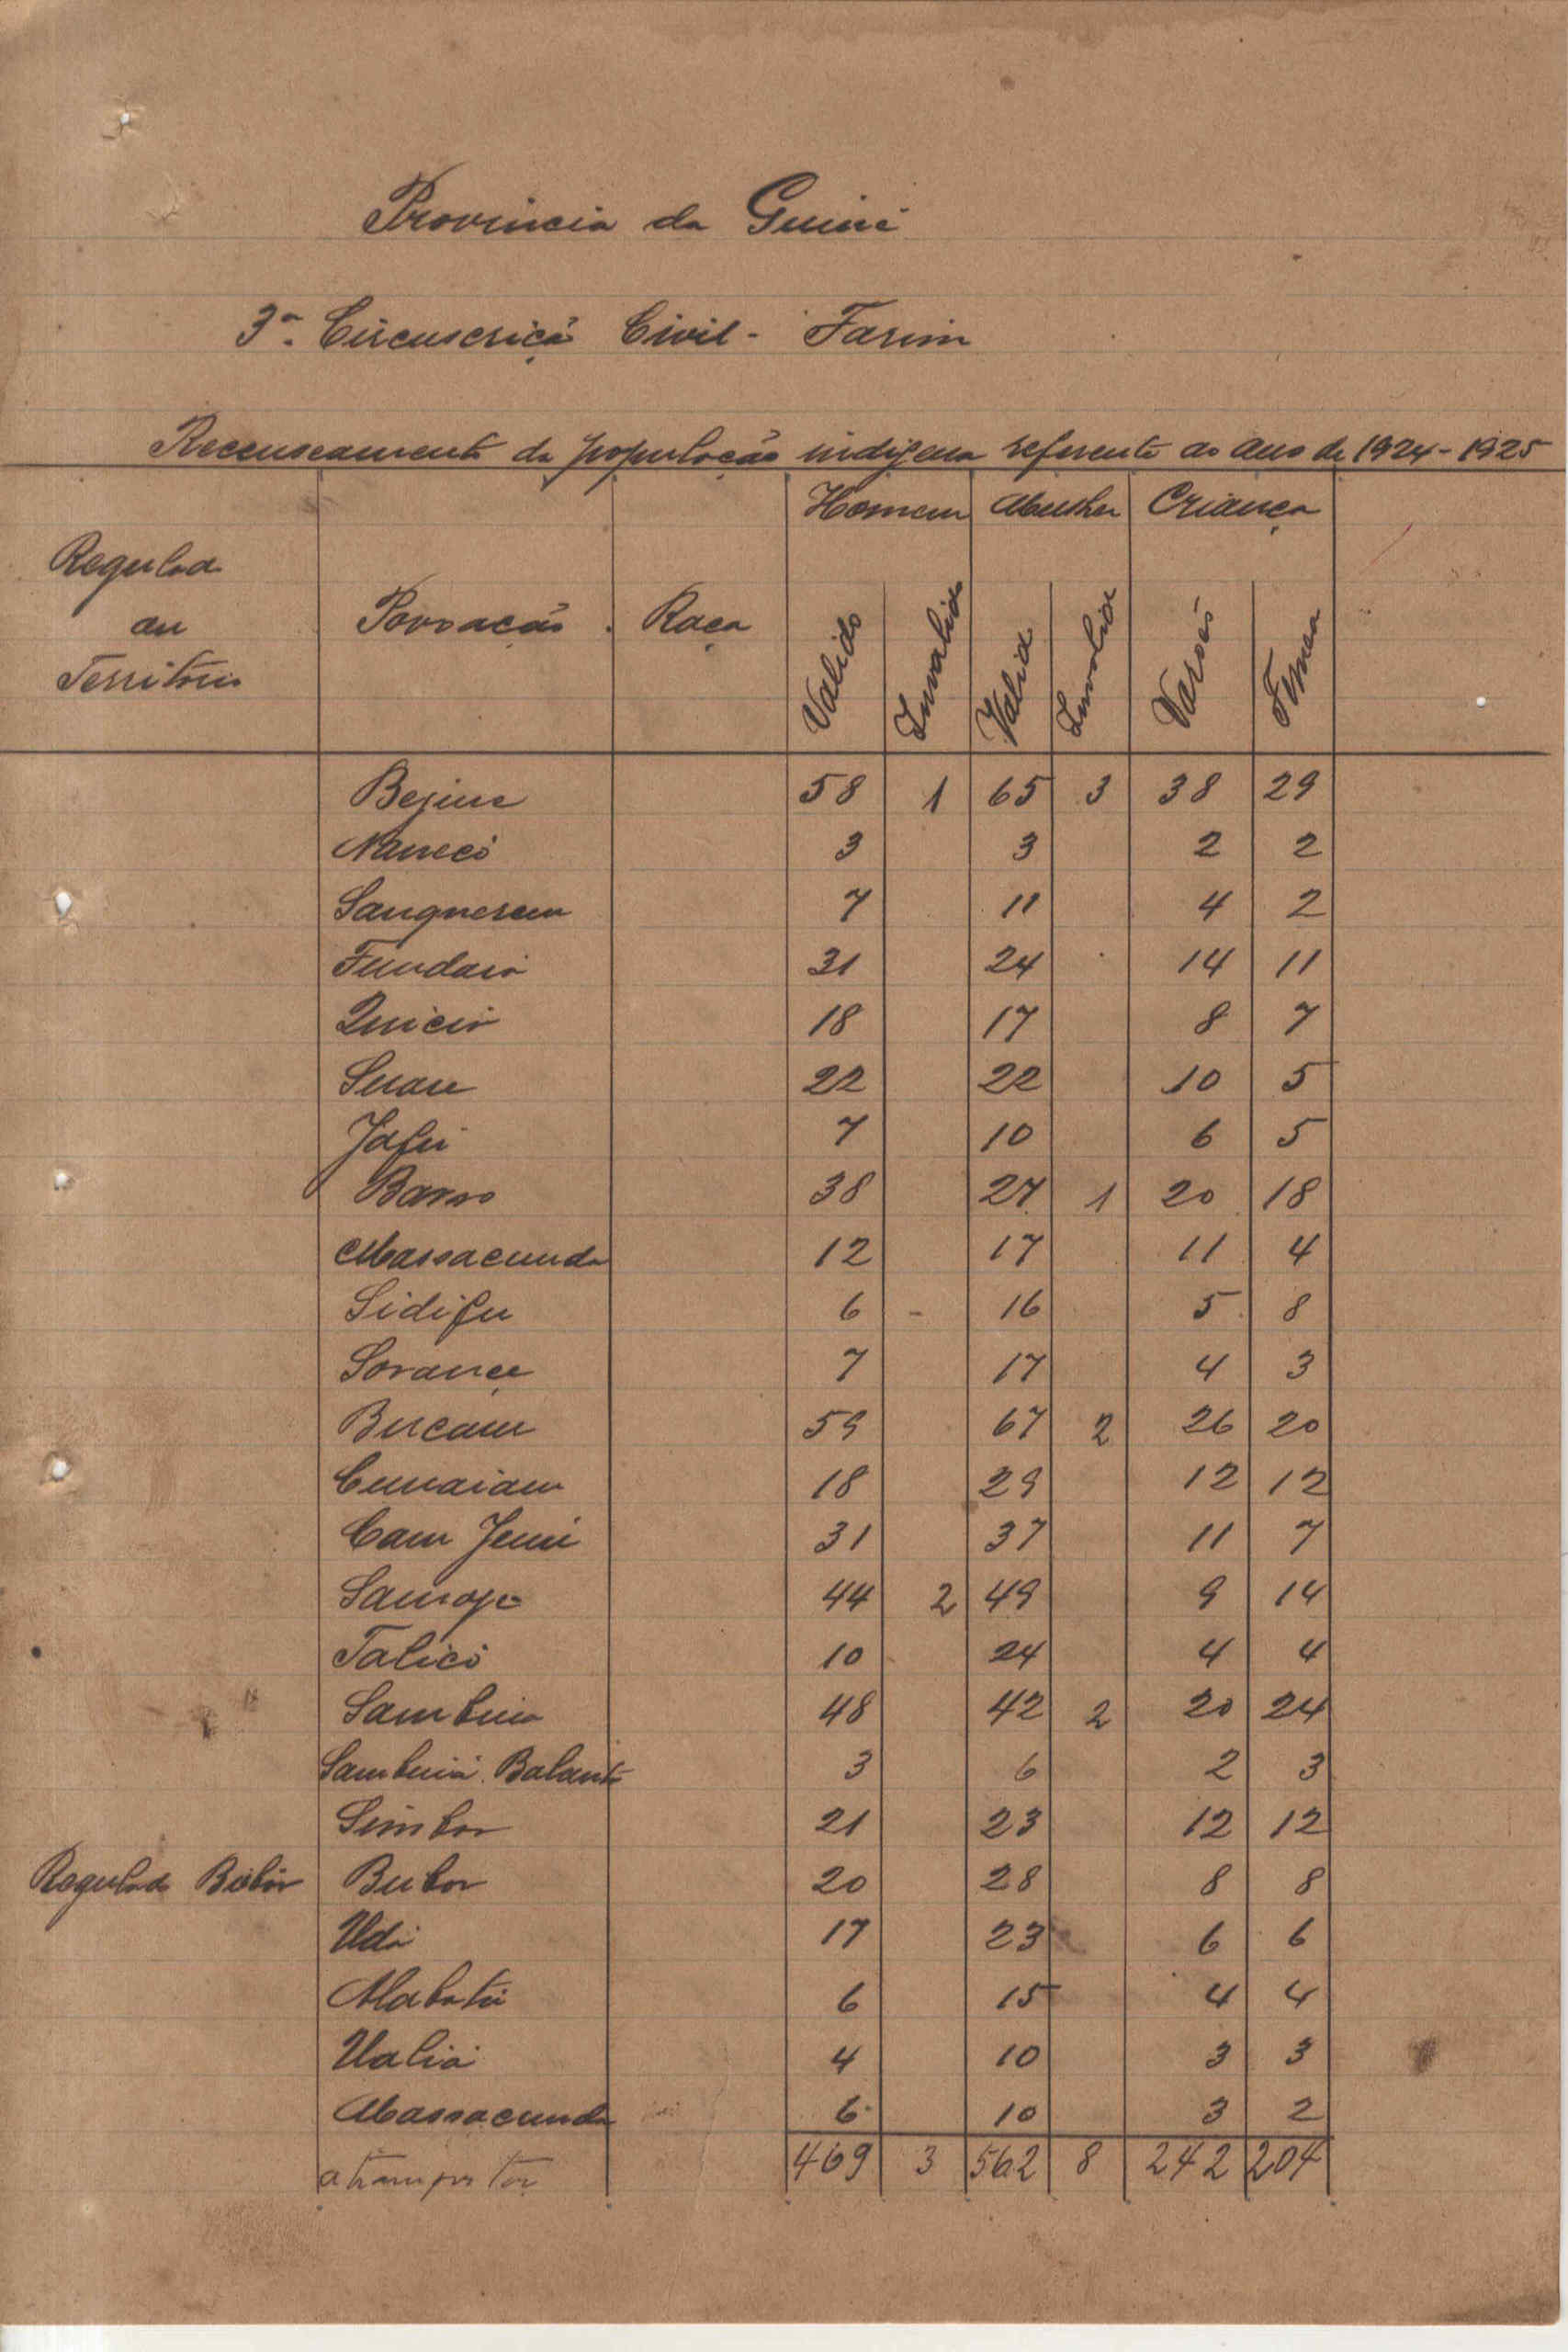 Provincia da Guiné
3ª Circuscriçã Civil - Farim
Recenseamento da população indigena referente ao ano de 1924-1925
Homem Mulher Criança
Regulado
ou
Territorio
Povoação Raça
Valido Invalido Valida Invalida Varões Femea
Bejine 58 1 65 3 38 29
3 3 2 2
7 11 4 2
31 24 14 11
18 17 8 7
Suau 22 22 10 5
Jafu 7 10 6 5
Barro 38 27 1 20 18
Massacunda 12 17 11 4
Sidifu 6 - 16 5 8
7 17 4 3
Bucaur 59 67 2 26 20
18 29 12 12
Cam Jemi 31 37 11 7
Samoge 44 2 49 9 14
Talicó 10 24 4 4
Sambuia 48 42 2 20 24
Sambuiá Balanta 3 6 2 3
Simbor 21 23 12 12
Regulado Bubor Bubor 20 28 8 8
Udá 17 23 6 6
Mabatu 6 15 4 4
Ualiá 4 10 3 3
Massacunda 6 10 3 2
a transportar 469 3 562 8 242 204